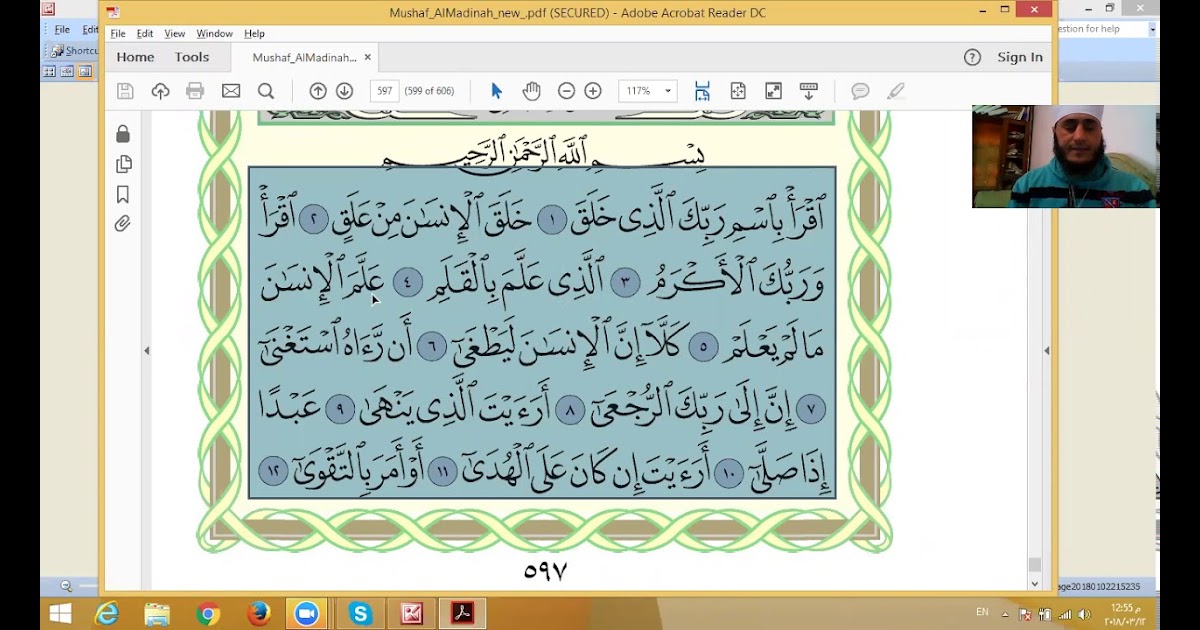 Mushaf_AlMadinah_new_.pdf (SECURED) - Adobe Acrobat Reader DC
File Edit
File Edit View Window Help
estion for help
Shortcu
Home Tools Mushaf_AlMadinah... × Sign In
597 (599 of 606) 117%
بِسْمِ ٱللَّهِ ٱلرَّحْمَٰنِ ٱلرَّحِيمِ
ٱقْرَأْ بِٱسْمِ رَبِّكَ ٱلَّذِى خَلَقَ ١ خَلَقَ ٱلْإِنسَٰنَ مِنْ عَلَقٍ ٢ ٱقْرَأْ
وَرَبُّكَ ٱلْأَكْرَمُ ٣ ٱلَّذِى عَلَّمَ بِٱلْقَلَمِ ٤ عَلَّمَ ٱلْإِنسَٰنَ
مَا لَمْ يَعْلَمْ ٥ كَلَّآ إِنَّ ٱلْإِنسَٰنَ لَيَطْغَىٰٓ ٦ أَن رَّءَاهُ ٱسْتَغْنَىٰٓ
٧ إِنَّ إِلَىٰ رَبِّكَ ٱلرُّجْعَىٰٓ ٨ أَرَءَيْتَ ٱلَّذِى يَنْهَىٰ ٩ عَبْدًا
إِذَا صَلَّىٰٓ ١٠ أَرَءَيْتَ إِن كَانَ عَلَى ٱلْهُدَىٰٓ ١١ أَوْ أَمَرَ بِٱلتَّقْوَىٰٓ ١٢
٥٩٧
age20180102215235
EN
12:55 م
٢٠١٨/٠٣/١٢